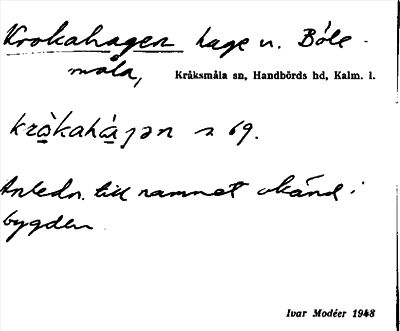 Krokahagen hage u. Böle-
måla,
Kråksmåla sn, Handbörds hd, Kalm. l.
krɷ̀kahàgən s. 69.
Anledn. till namnet okänd i
bygden
Ivar Modéer 1948